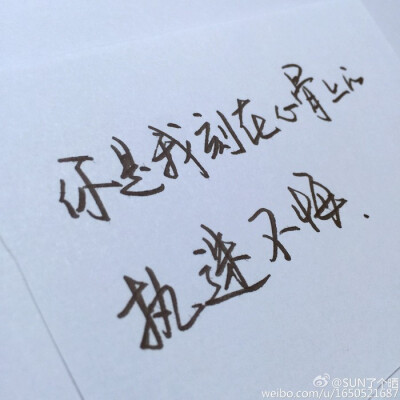 你是我刻在心骨上的
执迷不悔.
@SUN了个晒
weibo.com/u/1650521687